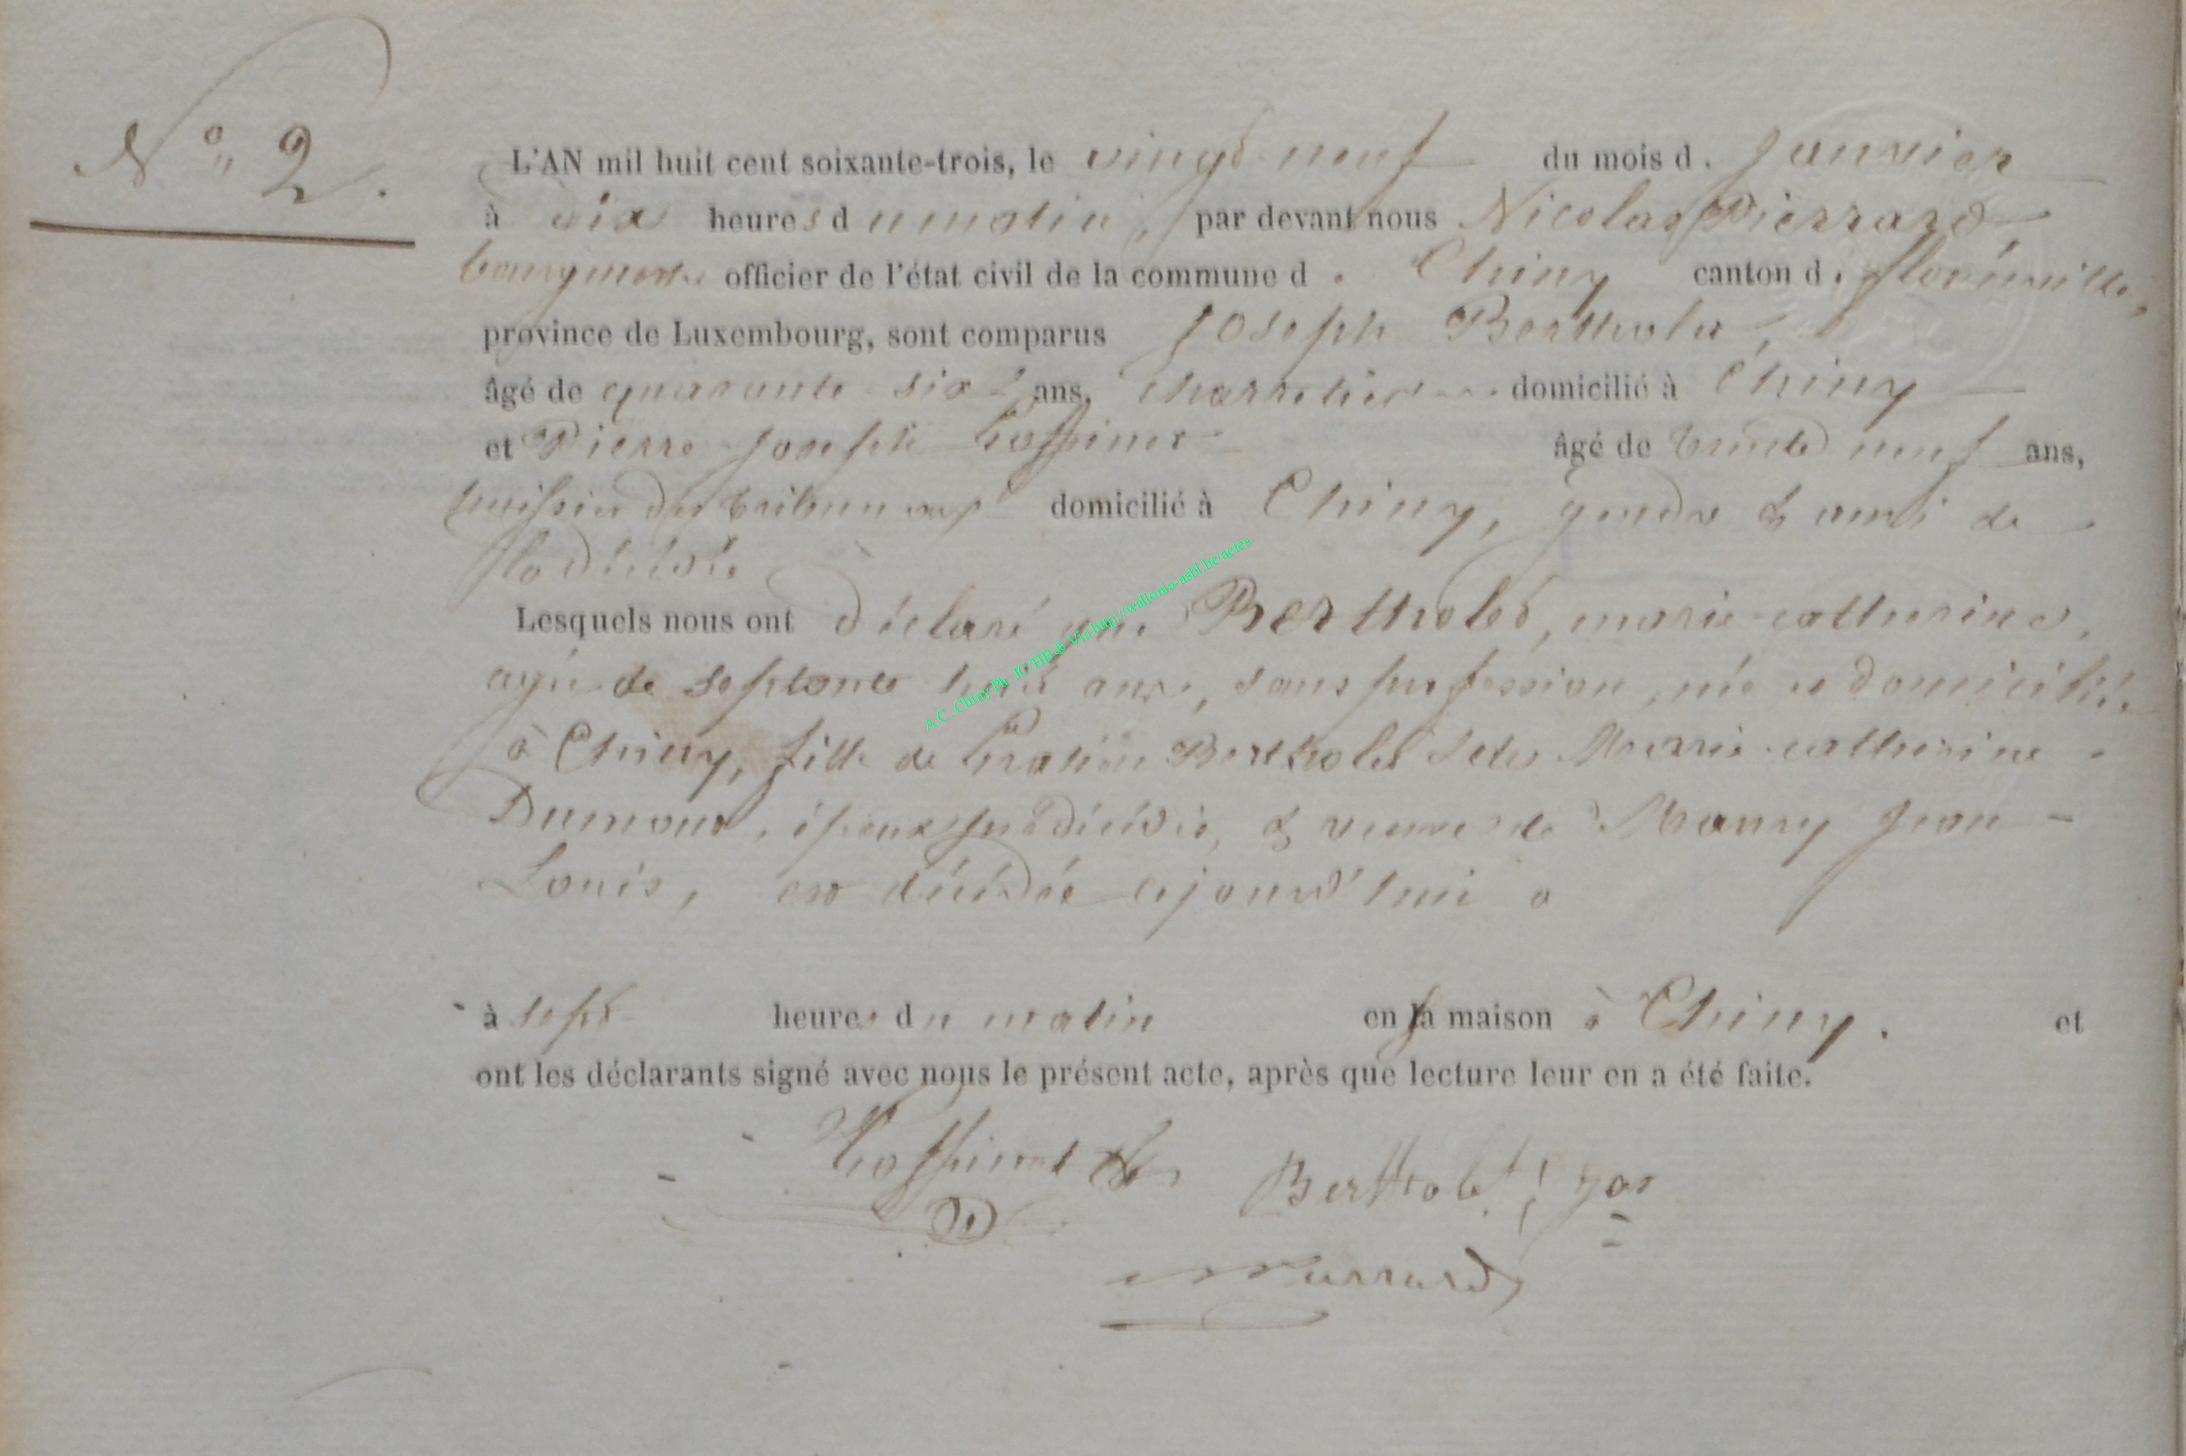 N° 2.
L'AN mil huit cent soixante-trois, le vingt neuf du mois d. Janvier
à dix heures du matin, par devant nous Nicolas Pierrard,
bourgmestre officier de l'état civil de la commune d. Chiny canton d. florenville,
province de Luxembourg, sont comparus Joseph Bertholet,
âgé de quarante-six ans, charretier domicilié à Chiny
et Pierre-Joseph âgé de trente neuf ans,
huissier des tribunaux domicilié à Chiny, gendre & ami de
la décédée
Lesquels nous ont déclaré que Bertholet, marie-catherine,
agée de septante ans, sans profession, née et domiciliée
à Chiny, fille de Bertholet et de Marie-catherine
Dumont, époux prédécédés, & veuve de Maury Jean
Louis, est décédée cejourd'hui à
à sept heures du matin en sa maison à Chiny. et
ont les déclarants signé avec nous le présent acte, après que lecture leur en a été faite.
Bertholet, Jos
Pierrard
A.C. Chiny Ph. JC HB © Via http://wallonia-asbl.be/actes